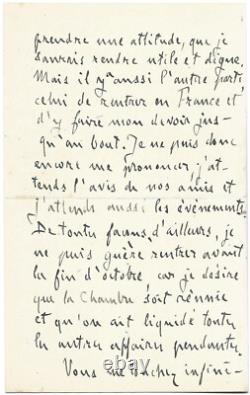 prendre une attitude, que je
saurais rendre utile et digne.
Mais il y a aussi l'autre parti,
celui de rentrer en France et
d'y faire mon devoir jus-
qu'au bout. Je ne puis donc
encore me prononcer, j'at-
tends l'avis de nos amis et
j'attends aussi les événements.
De toutes façons, d'ailleurs, je
ne puis guère rentrer avant
la fin d'octobre car je désire
que la Chambre soit réunie
et qu'on ait liquidé toutes
les autres affaires pendantes.
Vous me touchez infini-
ebay